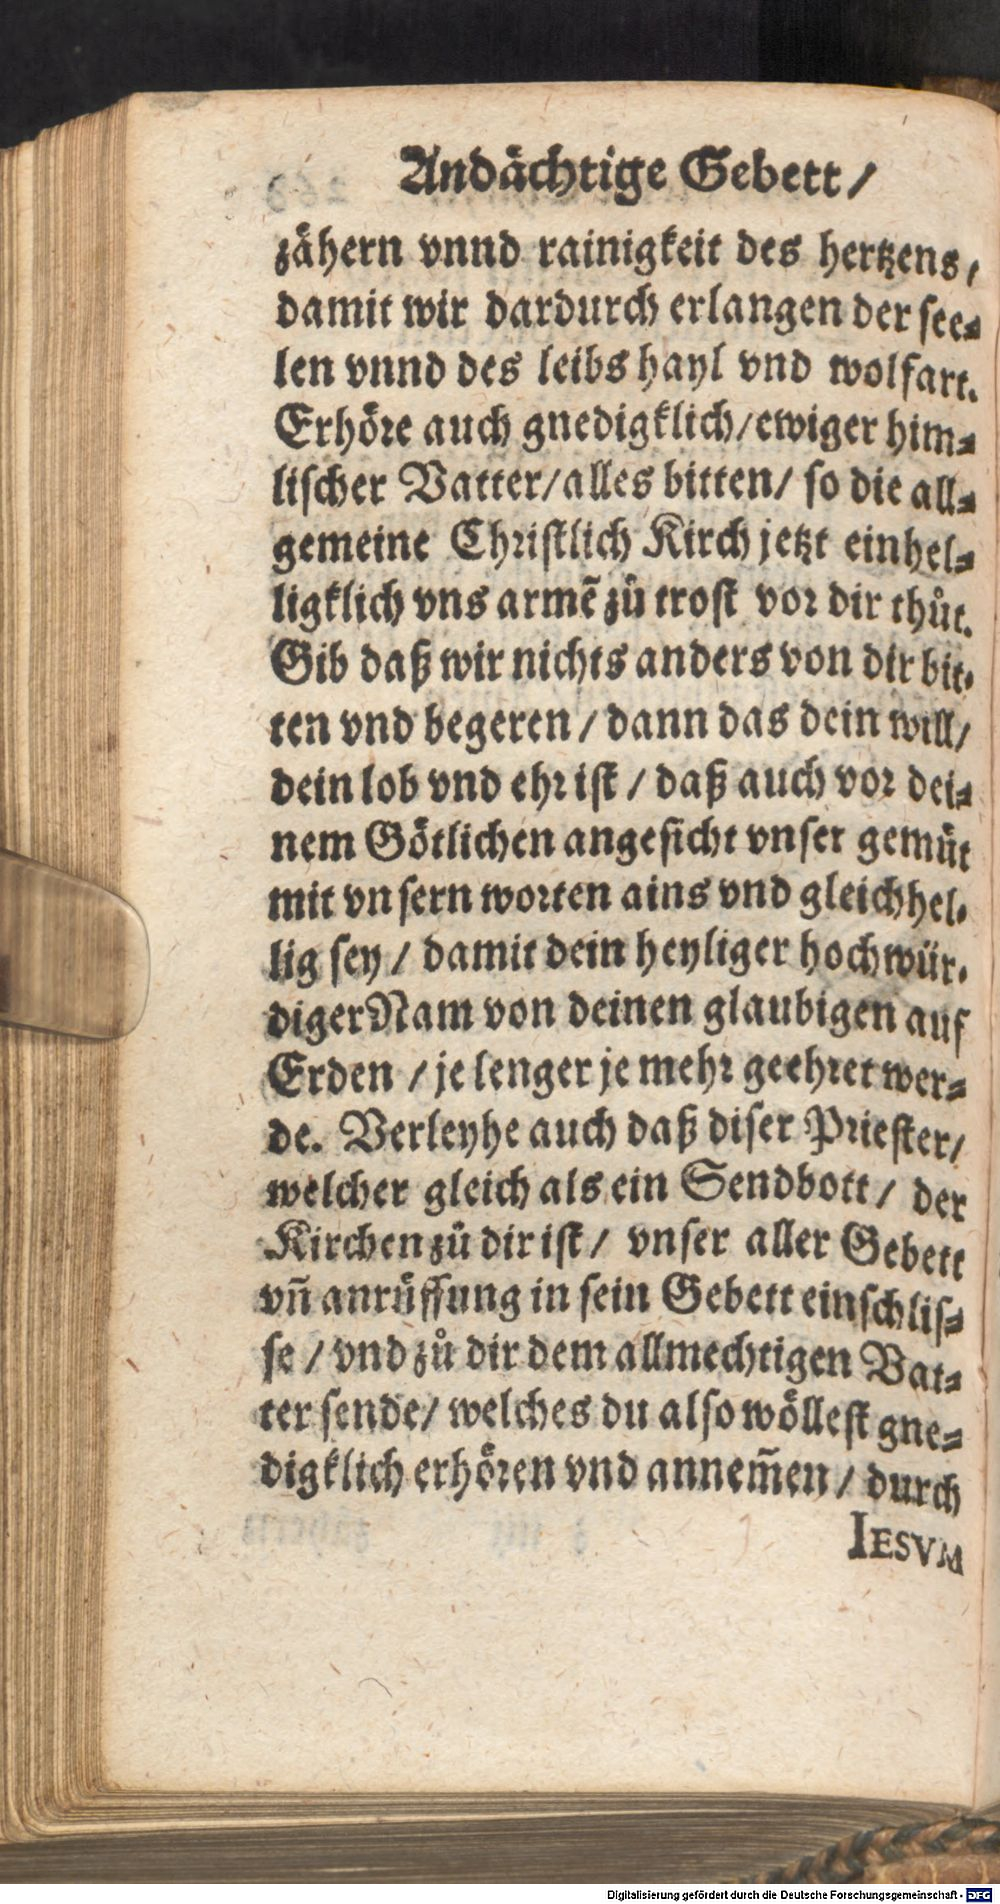 Andächtige Gebett /
zähern vnnd rainigkeit des hertzens /
damit wir dardurch erlangen der see⸗
len vnnd des leibs hayl vnd wolfart.
Erhöre auch gnedigklich / ewiger him⸗
lischer Vatter / alles bitten / so die all⸗
gemeine Christlich Kirch jetzt einhel⸗
ligklich vns armẽ zů trost vor dir thůt.
Gib daß wir nichts anders von dir bit⸗
ten vnd begeren / dann das dein will /
dein lob vnd ehr ist / daß auch vor dei⸗
nem Götlichen angesicht vnser gemüt
mit vnsern worten ains vnd gleichhel⸗
lig sey / damit dein heyliger hochwür⸗
diger Nam von deinen glaubigen auf
Erden / je lenger je mehr geehret wer⸗
de. Verleyhe auch daß diser Priester /
welcher gleich als ein Sendbott / der
Kirchen zů dir ist / vnser aller Gebett
vñ anrüffung in sein Gebett einschlis⸗
se / vnd zů dir dem allmechtigen Vat⸗
ter sende / welches du also wöllest gne⸗
digklich erhören vnd annem̃en / durch
IESVM
Digitalisierung gefördert durch die Deutsche Forschungsgemeinschaft - DFG